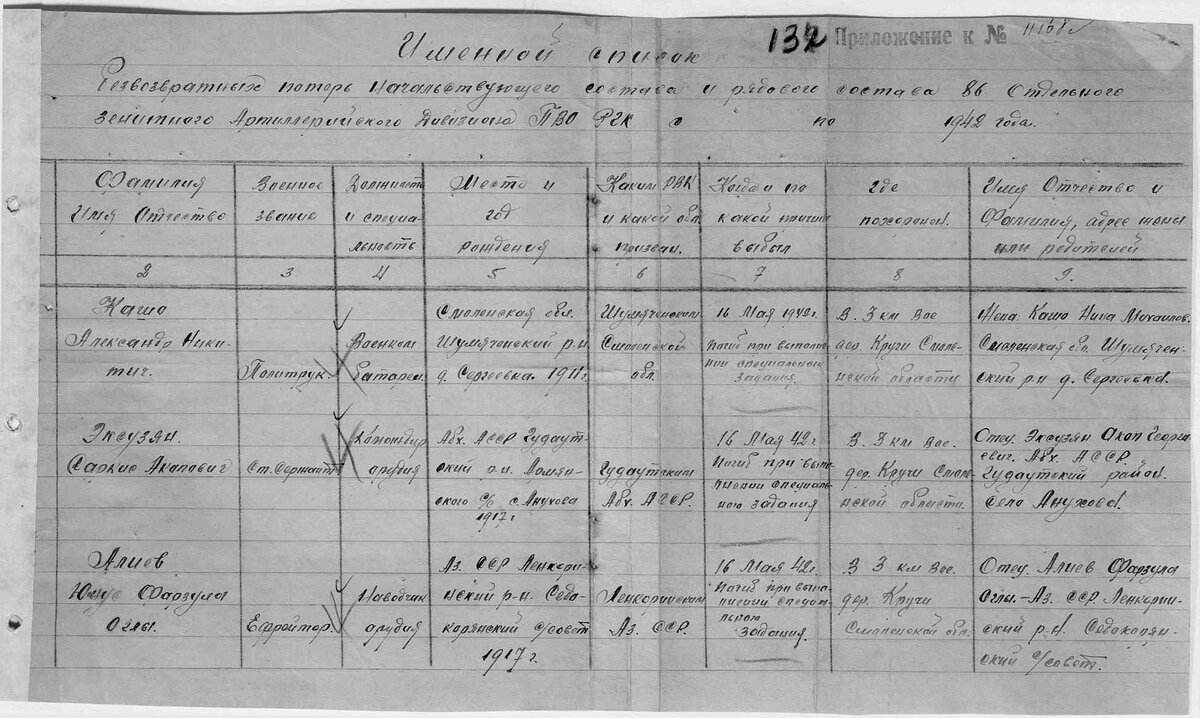 132 Приложение к № 11138с
Именной список
безвозвратных потерь Начальствующего состава и рядового состава 86 Отдельного
зенитного Артиллерийского Дивизиона ПВО РГК с по 1942 года.
Фамилия
Имя Отчество
Военное
звание
Должность
и специа-
льность
Место и
год
рождения
Каким РВК
и какой обл.
призван.
Когда и по
какой причине
выбыл
Где
похоронен.
Имя Отчество и
Фамилия, адрес жены
или родителей
2 3 4 5 6 7 8 9.
Кашо
Александр Ники-
тич.
Политрук.
Военком
батареи.
Смоленская обл.
Шумячский р-н
д. Сергеевка. 1911г.
Шумячским
Смоленской
обл.
16 Мая 1942г.
Погиб при выпол-
нении специального
задания.
В 3 км вос.
дер. Кручи Смоле-
нской области
Жена Кашо Нина Михайлов.
Смоленская обл. Шумячен-
ский р-н д. Сергеевка.
Эксузян.
Саркис Акопович
Ст. Сержант
Командир
орудия
Абх. АССР Гудаут-
ский р-н. Армян-
ского с/с с. Анухова
1917г
Гудаутским
Абх. АССР.
16 Мая 42г.
Погиб при выпо-
лнении специаль-
ного задания
В. 3 км вос.
дер. Кручи Смоле-
нской области.
Отец Эксузян Акоп Георги-
евич. Абх. АССР.
Гудаутский район.
Село Анухова.
Алиев
Юнус Фарзула
Оглы.
Ефрейтор.
Наводчик
орудия
Аз. ССР Ленкори-
нский р-н. Седа-
корянский с/совет
1917г.
Ленкоринским
Аз. ССР.
16 Мая 42г.
Погиб при выпо-
лнении специа-
льного
задания.
В 3 км вос.
дер. Кручи
Смоленской обл.
Отец Алиев Фарзула
Оглы.-Аз. ССР Ленкорин-
ский р-н. Седакорян-
ский с/совет.